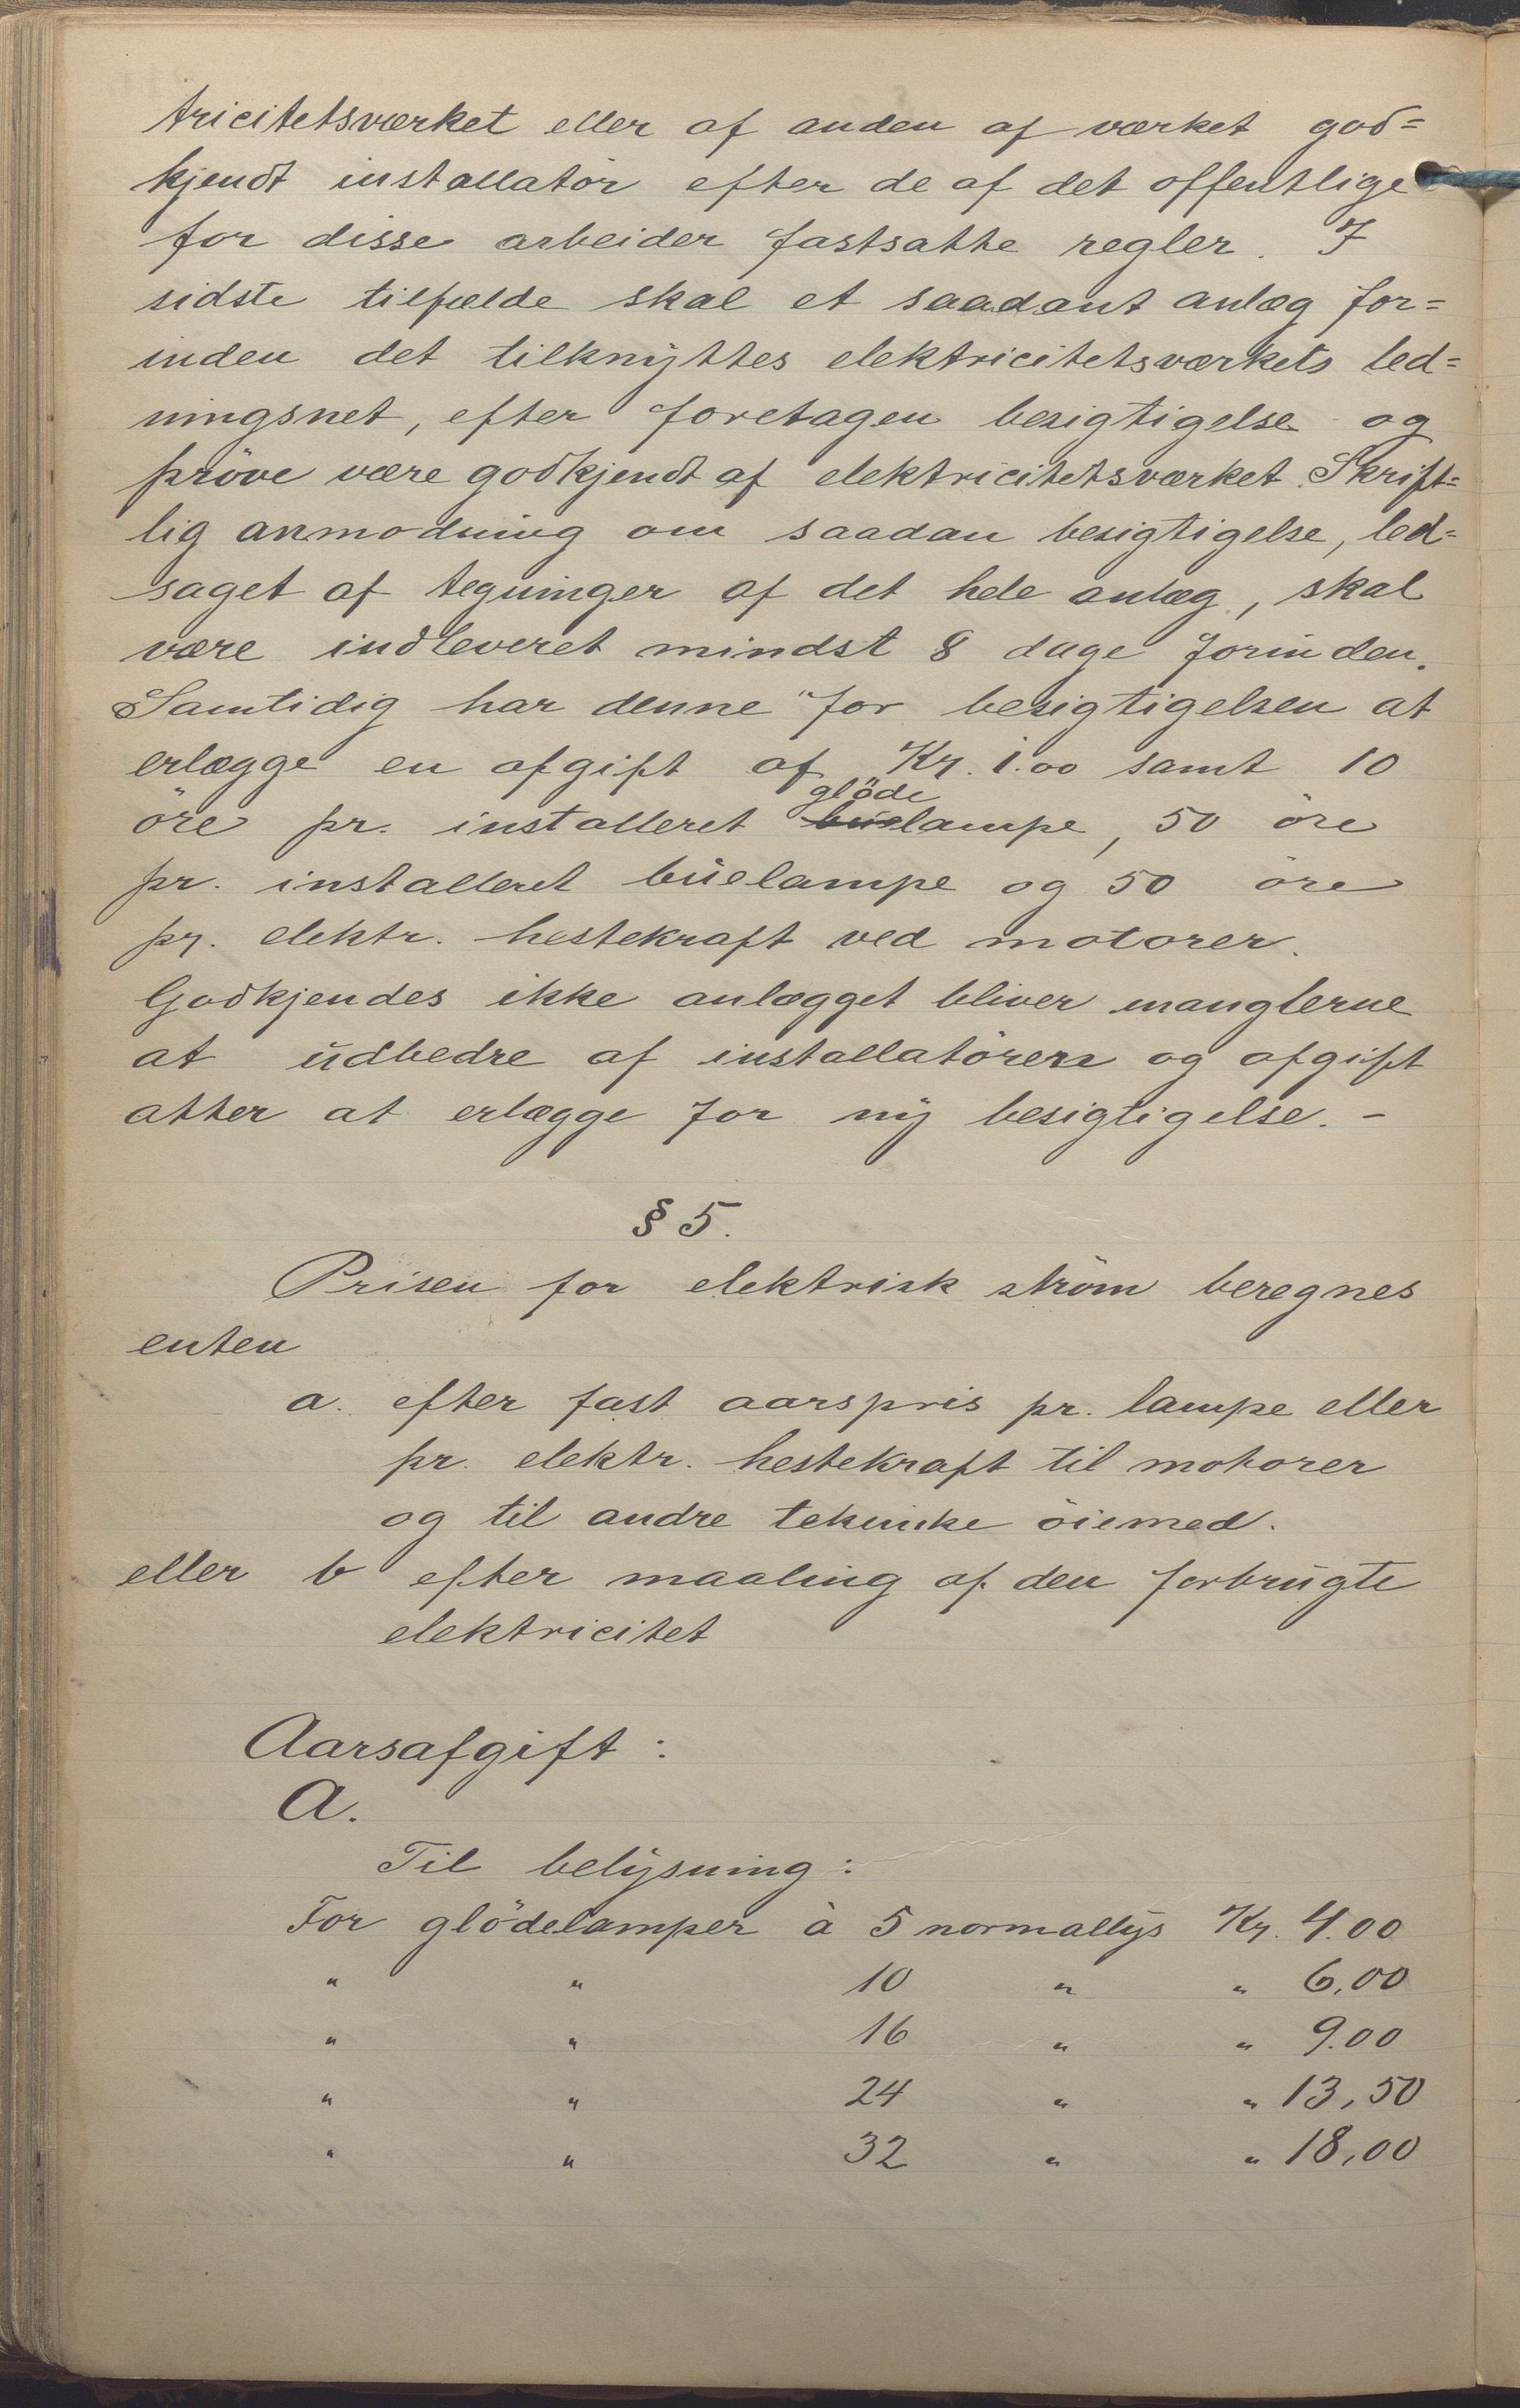 tricitetsværket eller af anden af værket god=
kjendt installatör efter de af det offentlige
for disse arbeider fastsatte regler. I
sidste tilfælde skal et saadant anlæg for=
inden det tilknyttes elektricitetsværkets led=
ningsnet, efter foretagen besigtigelse og
pröve være godkjendt af elektricitetsværket. Skrift=
lig anmodning om saadan besigtigelse, led=
saget af tegninger af det hele anlæg, skal
være indleveret mindst 8 dage forinden.
Samtidig har denne for besigtigelsen at
erlægge en afgift af Kr. 1.00 samt 10
glöde
öre pr. installeret buelampe, 50 öre
pr. installeret buelampe og 50 öre
pr. elektr. hestekraft ved motorer.
Godkjendes ikke anlægget bliver manglerne
at udbedre af installatören og afgift
atter at erlægge for ny besigtigelse. -
§ 5.
Prisen for elektrisk ström beregnes
enten
a. efter fast aarspris pr. lampe eller
pr. elektr. hestekraft til motorer
og til andre tekniske öiemed.
eller b efter maaling af den forbrugte
elektricitet
Aarsafgift :
A.
Til belysning :
For glödelamper à 5 normallys Kr. 4.00
" " 10 " " 6,00
" " 16 " " 9.00
" " 24 " " 13,50
" " 32 " " 18,00